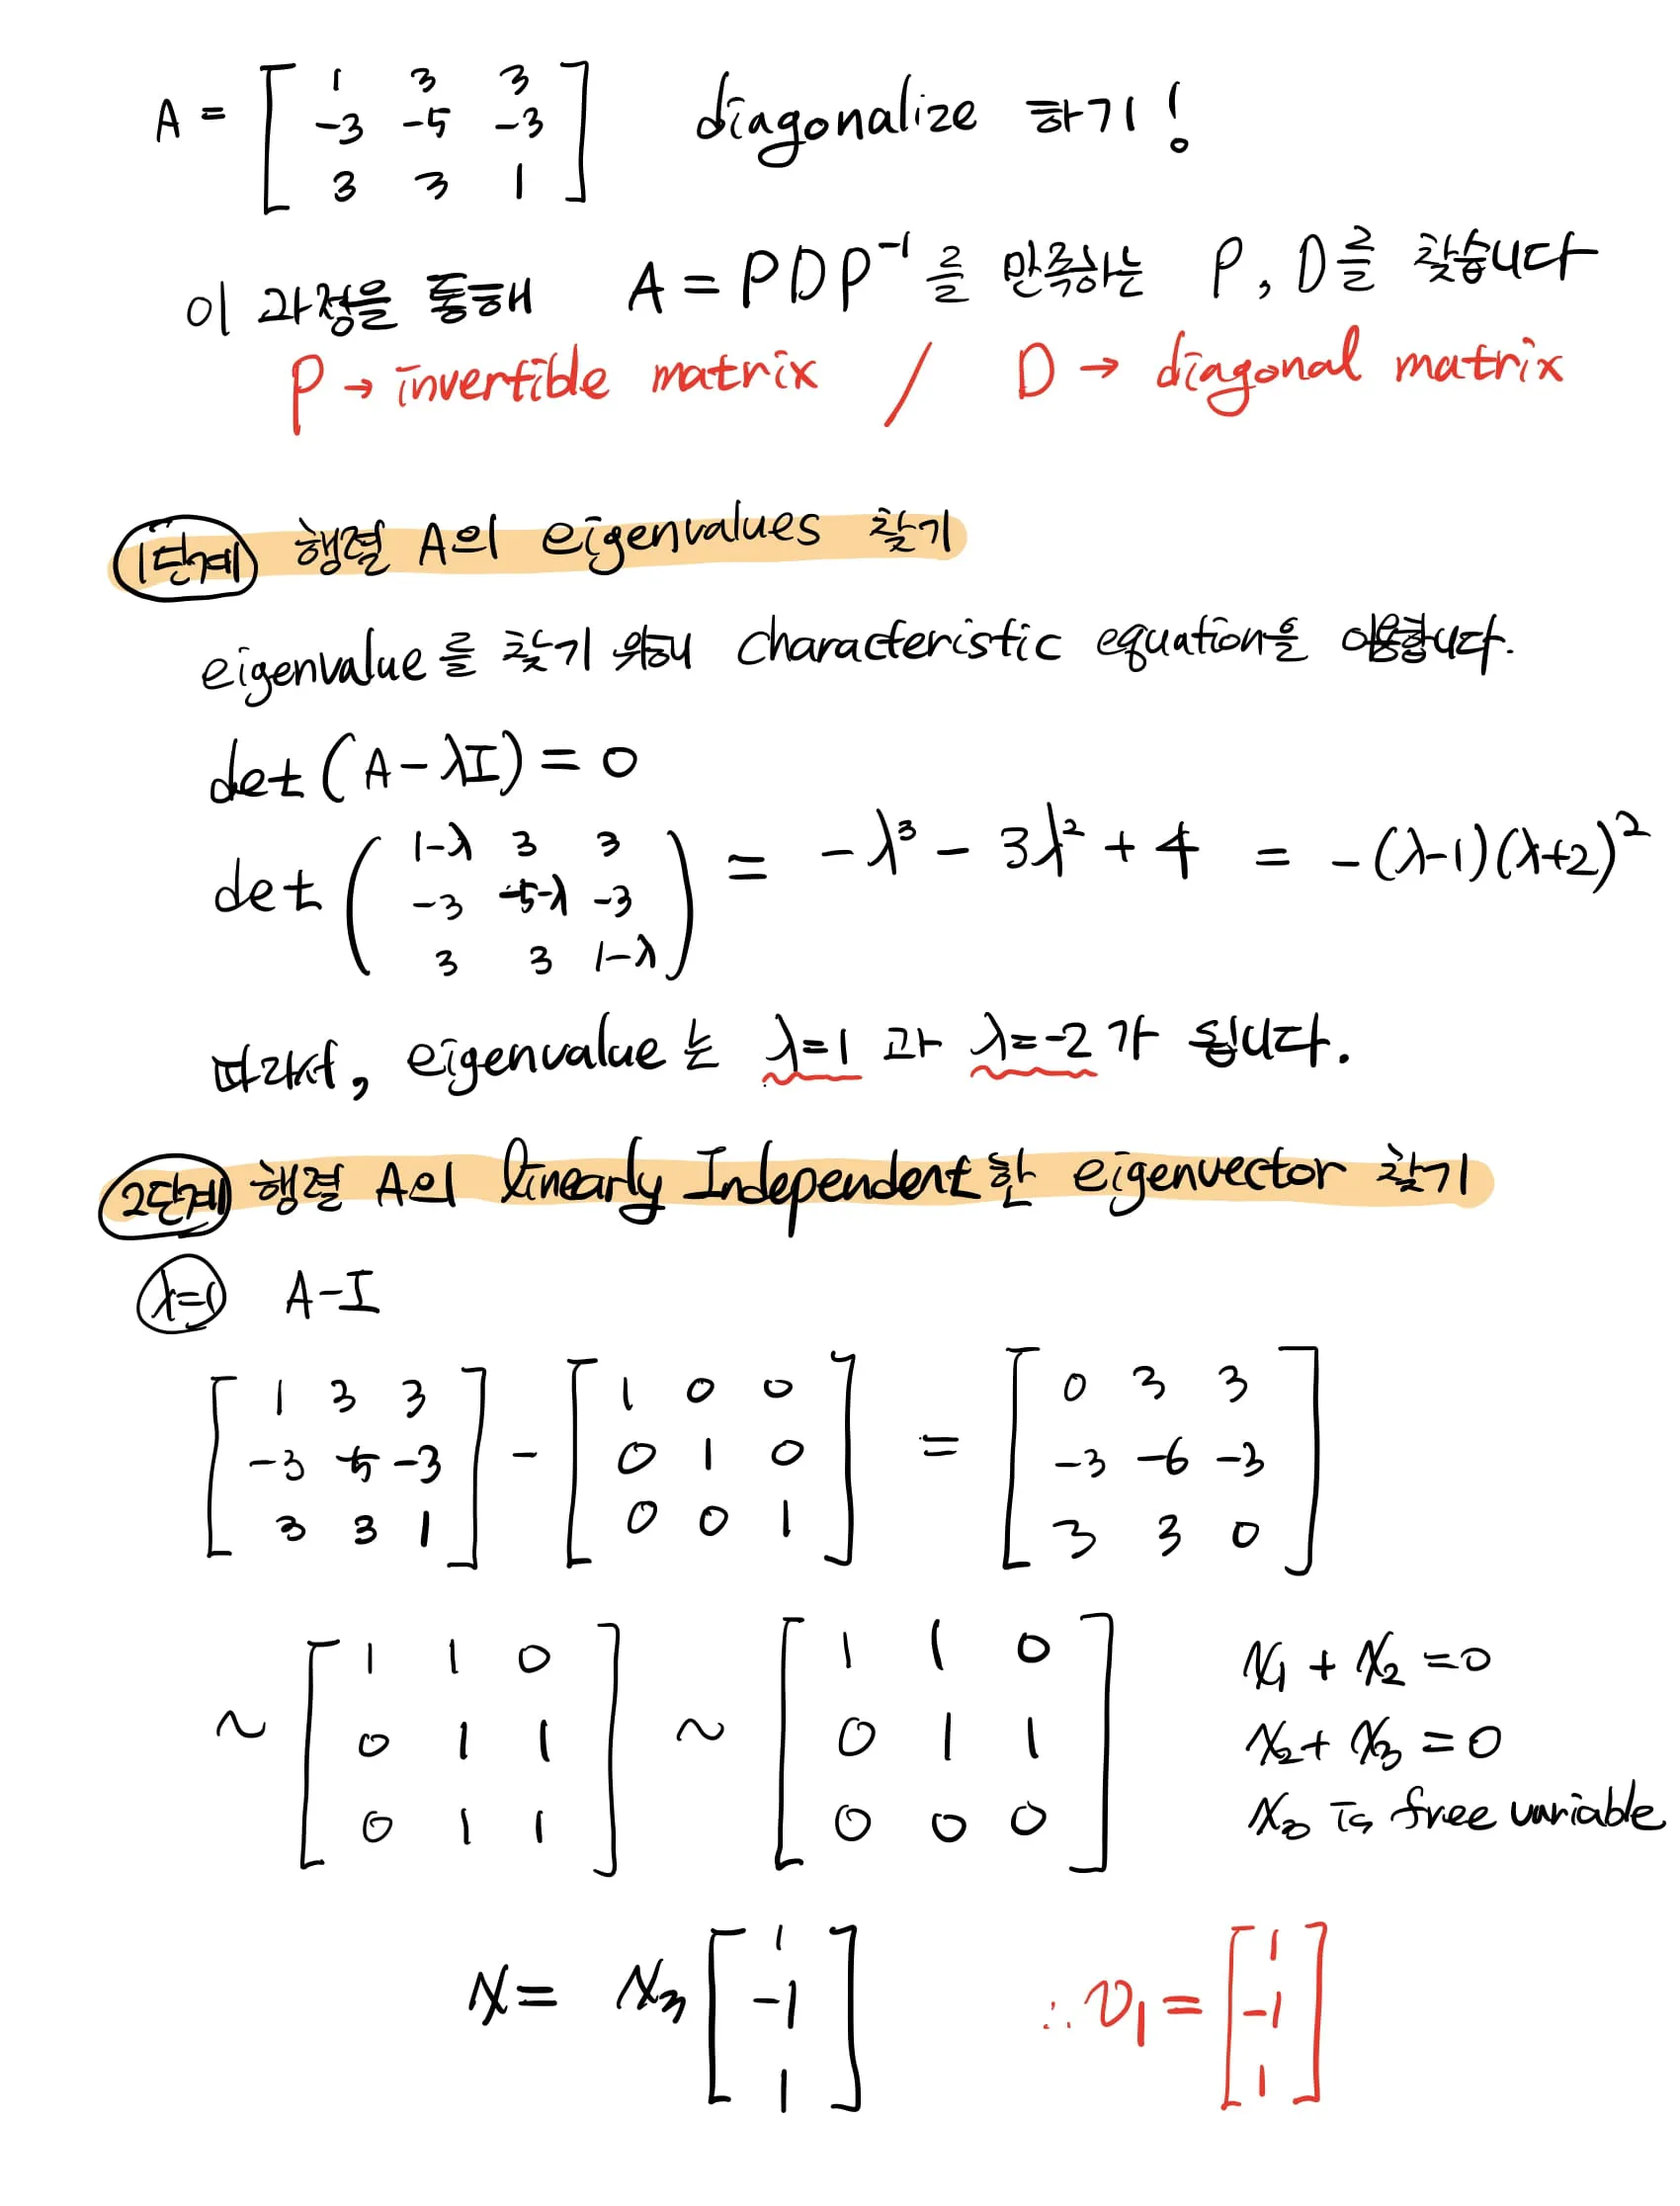 A = [ 1 3 3 diagonalize 하기!
-3 -5 -3
3 3 1 ]
이 과정을 통해 A = PDP⁻¹ 를 만족하는 P, D를 찾습니다
P → invertible matrix / D → diagonal matrix
1단계 행렬 A의 eigenvalues 찾기
eigenvalue를 찾기 위해 characteristic equation을 이용합니다.
det (A-λI) = 0
det ( 1-λ 3 3
-3 -5-λ -3
3 3 1-λ ) = -λ³ - 3λ² + 4 = -(λ-1)(λ+2)²
따라서, eigenvalue는 λ=1 과 λ=-2가 됩니다.
2단계 행렬 A의 linearly Independent한 eigenvector 찾기
λ=1 A-I
[ 1 3 3 ] - [ 1 0 0 ] = [ 0 3 3 ]
[ -3 -5 -3 ] [ 0 1 0 ] [ -3 -6 -3 ]
[ 3 3 1 ] [ 0 0 1 ] [ 3 3 0 ]
~ [ 1 1 0 ] ~ [ 1 1 0 ] x₁ + x₂ = 0
[ 0 1 1 ] [ 0 1 1 ] x₂ + x₃ = 0
[ 0 1 1 ] [ 0 0 0 ] x₃ is free variable
x = x₃ [ 1 ∴ v₁ = [ 1
-1 -1
1 ] 1 ]